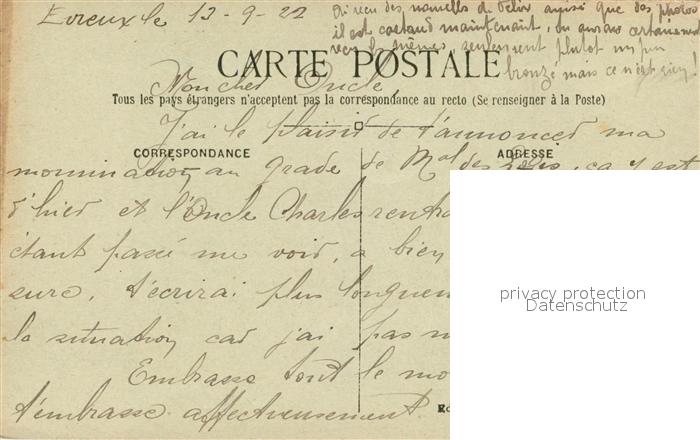 Evreux le 13-9-22
Ai reçu des nouvelles de Félix ainsi que des photos
il est costaud maintenant, tu auras certainement
reçu les mêmes seulement plutôt un peu
bronzé mais ce n'est rien!
CARTE POSTALE
Mon cher Oncle,
Tous les pays étrangers n'acceptent pas la correspondance au recto (Se renseigner à la Poste)
J'ai le plaisir de t'annoncer ma
CORRESPONDANCE
ADRESSE
nomination au grade de Mal des Logis, ça y est
d'hier et l'Oncle Charles rentra
étant passé me voir, a bien
sure, t'écrirai plus longuem
la situation car j'ai pas m
Embrasse tout le mo
t'embrasse affectueusement.
privacy protection
Datenschutz